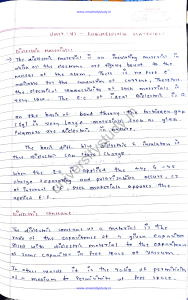 www.universitystudy.in
UNIT-VI : ENGINEERING MATERIALS
DIELECTRIC MATERIALS:
→ The dielectric material is an insulating material in
which all the electrons are tightly bound to the
nucleus of the atom. There is no free e⁻
available for the conduction of current. Therefore
the electrical conductivity of such materials is
very low. The E.C of ideal dielectric is
on the basis of band theory, the forbidden gap
(Eg) is very large. Materials such as glass
Polymers are dielectric in nature.
The basic diff. b/w dielectric & insulators is
that dielectric can store charge
When the E.F is applied the +ve & -ve
charge separated
of internal such materials opposes the
applied E.F.
DIELECTRIC CONSTANT
The dielectric constant of a material is the
ratio of the capacitance of a given capacitor
filled with dielectric material to the capacitance
of same capacitor in free space or vacuum
In other words it is the ratio of permittivity
of a medium to permittivity of free space.
www.universitystudy.in